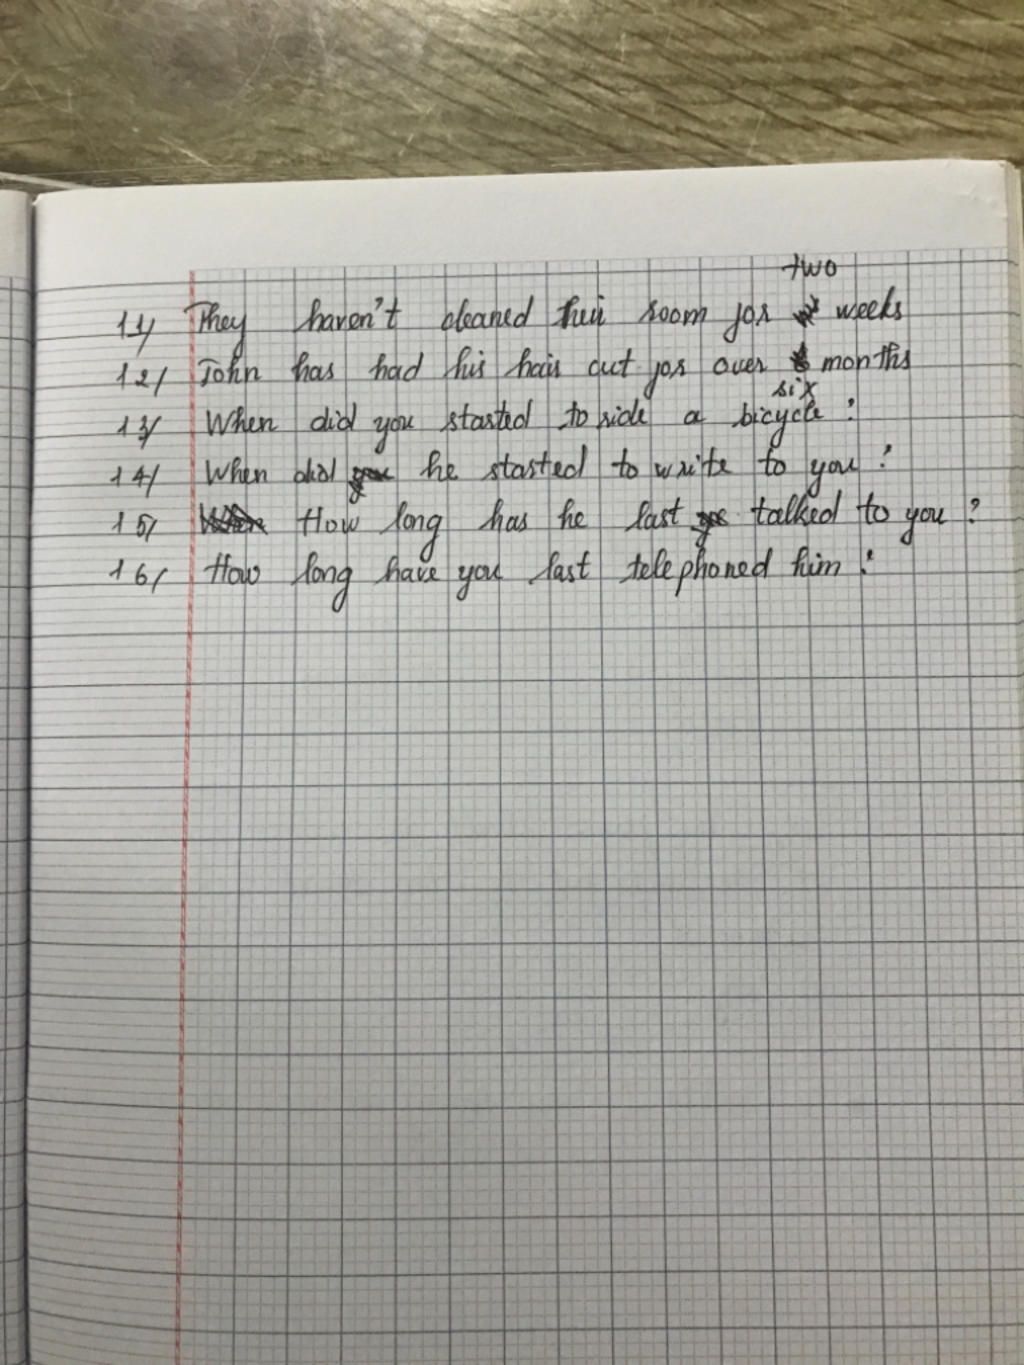 two
11/ They haven't cleaned their room for weeks
12/ John has had his hair cut for over months
six
13/ When did you started to ride a bicycle ?
14/ When did he started to write to you ?
15/ How long has he last talked to you ?
16/ How long have you last telephoned him ?